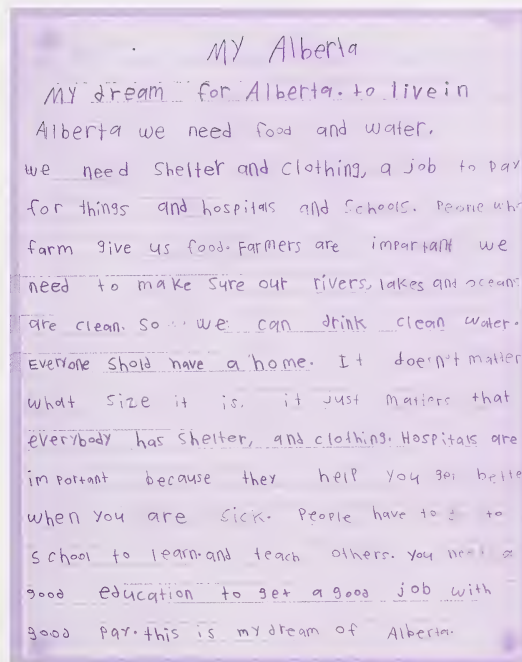 MY Alberta
MY dream for Alberta. to live in
Alberta we need food and water.
we need Shelter and Clothing, a job to pay
for things and hospitals and Schools. People who
farm give us food. Farmers are important we
need to make sure our rivers, lakes and oceans
are clean. So we can drink clean water.
Everyone Shold have a home. It doesn't matter
what size it is. it just matters that
everybody has Shelter, and clothing. Hospitals are
important because they help you get better
when you are sick. People have to to
school to learn. and teach others. you need a
good education to get a good job with
good pay. this is my dream of Alberta.